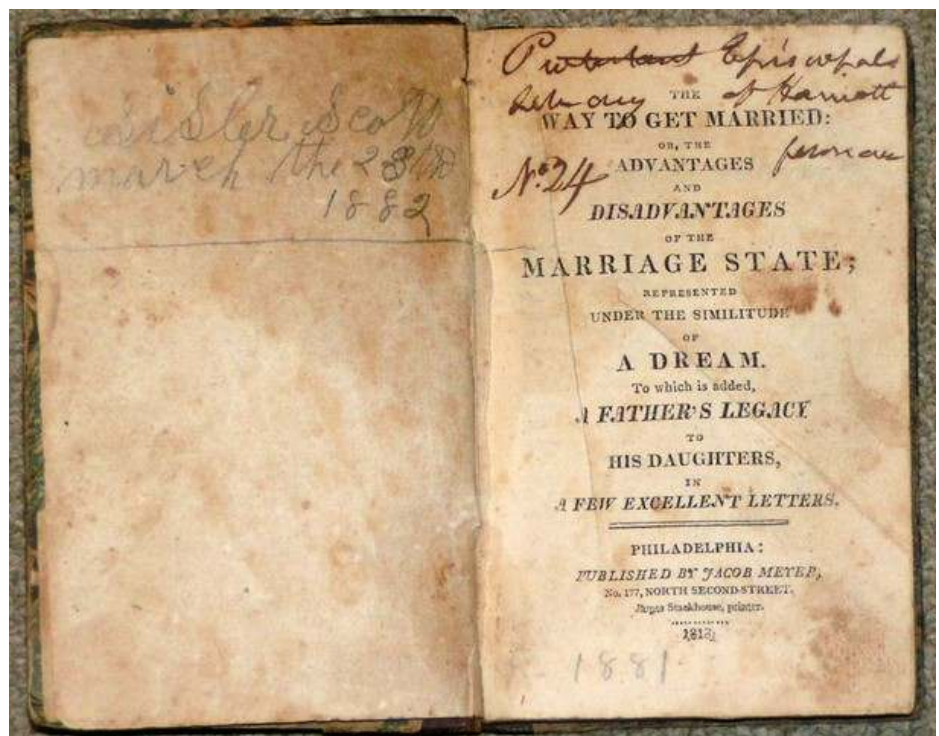 Scott
march the 28th
1882
Protestant Episcopal
of Harriott
THE
WAY TO GET MARRIED:
OR, THE
ADVANTAGES
No. 24
AND
DISADVANTAGES
OF THE
MARRIAGE STATE;
REPRESENTED
UNDER THE SIMILITUDE
OF
A DREAM.
To which is added,
A FATHER'S LEGACY
TO
HIS DAUGHTERS,
IN
A FEW EXCELLENT LETTERS.
PHILADELPHIA:
PUBLISHED BY JACOB MEYER,
No. 177, NORTH SECOND-STREET.
James Stackhouse, printer.
1813
1881